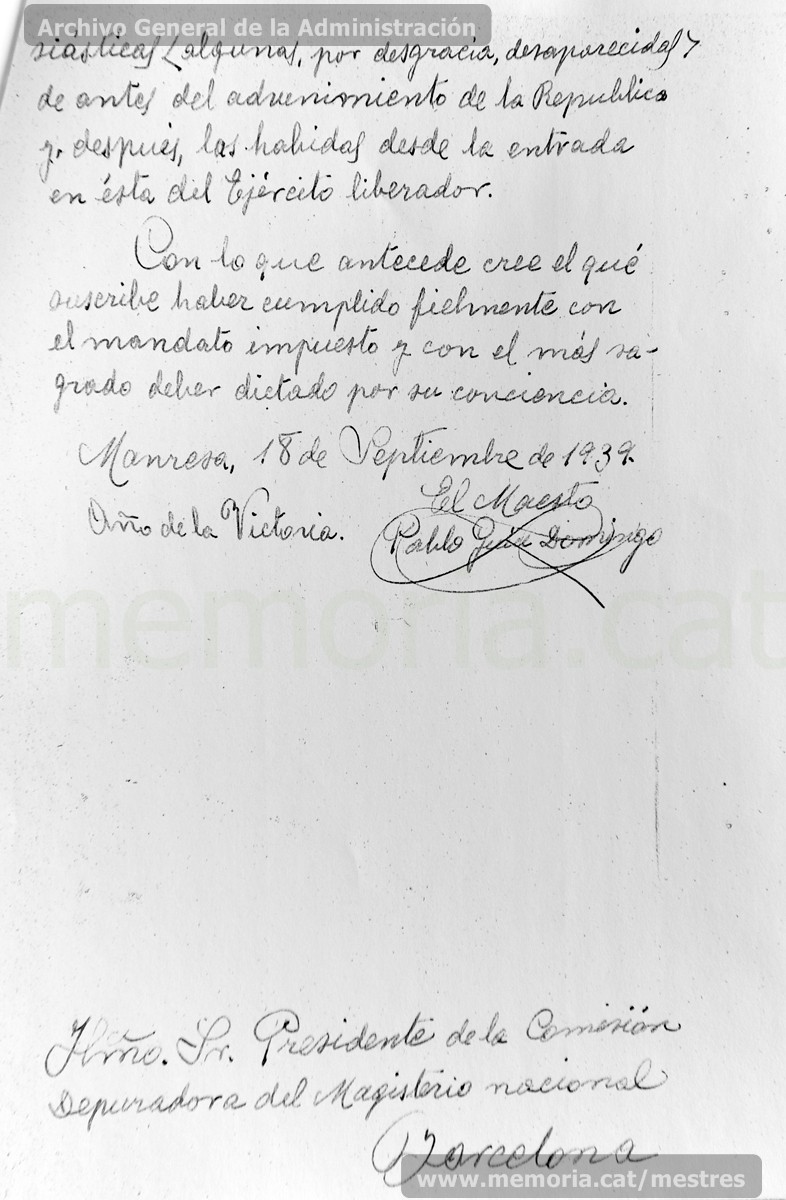 Archivo General de la Administración
siásticas (algunas, por desgracia, desaparecidas)
de antes del advenimiento de la Republica
y, después, las habidas desde la entrada
en ésta del Ejército liberador.
Con lo que antecede cree el qué
suscribe haber cumplido fielmente con
el mandato impuesto y con el más sa-
grado deber dictado por su conciencia.
Manresa, 18 de Septiembre de 1939.
El Maestro
Año de la Victoria.
Pablo Domingo
memoria.cat
Ilmo. Sr. Presidente de la Comisión
Depuradora del Magisterio nacional
Barcelona
www.memoria.cat/mestres